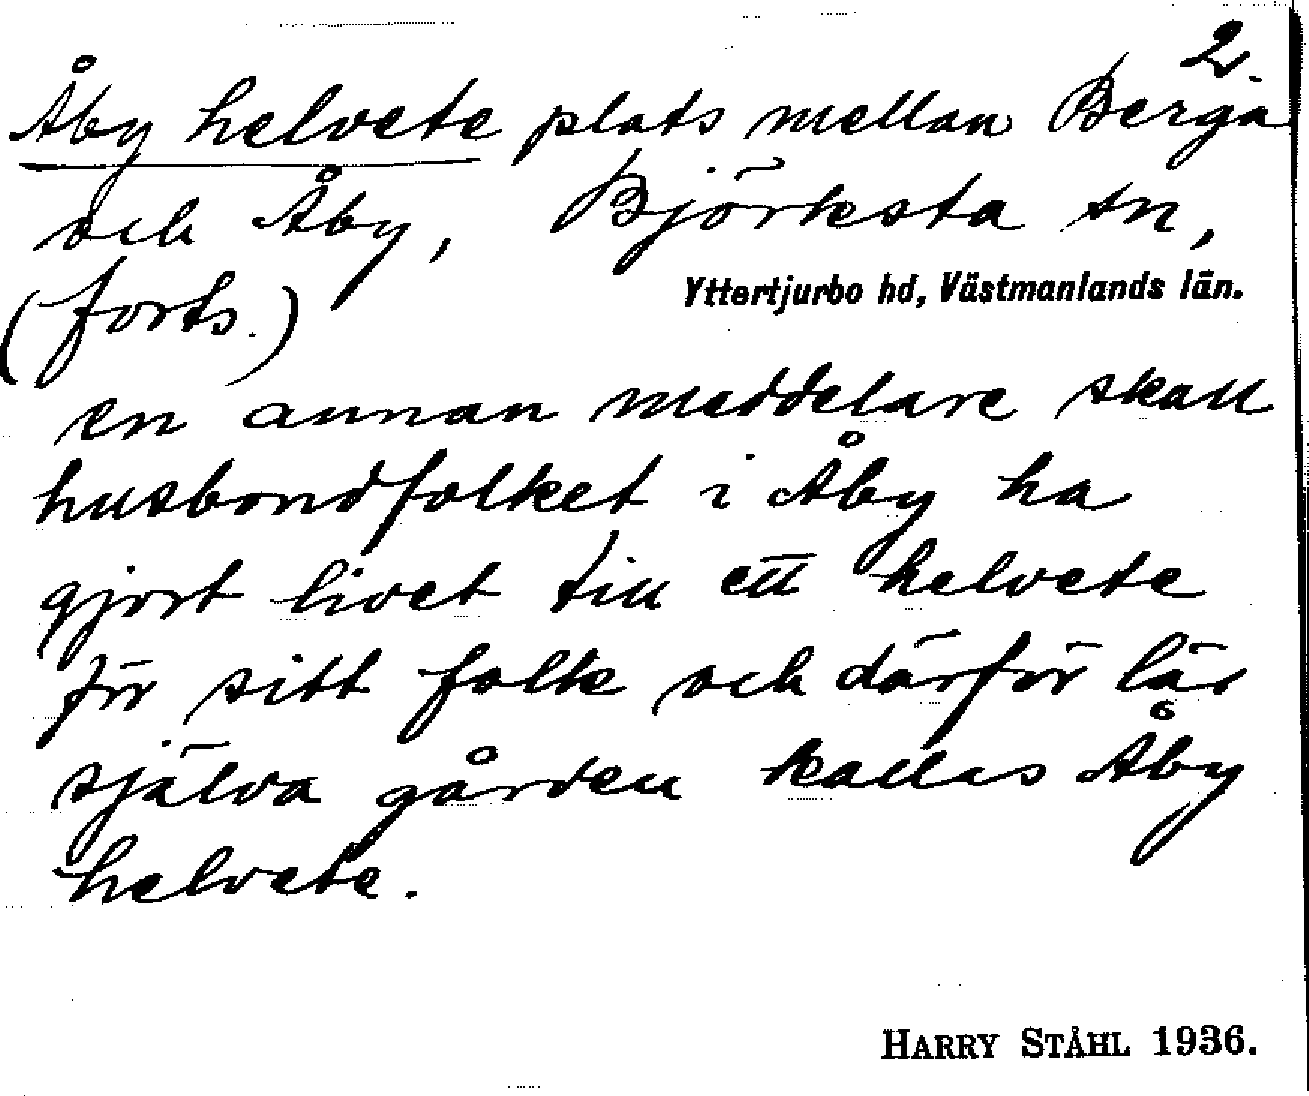 2.
Åby helvete plats mellan Berga
och Åby, Björksta sn,
Yttertjurbo hd, Västmanlands län.
(forts.)
en annan meddelare skall
husbondfolket i Åby ha
gjort livet till ett helvete
för sitt folk och därför lär
själva gården kallas Åby
helvete.
HARRY STÅHL 1936.